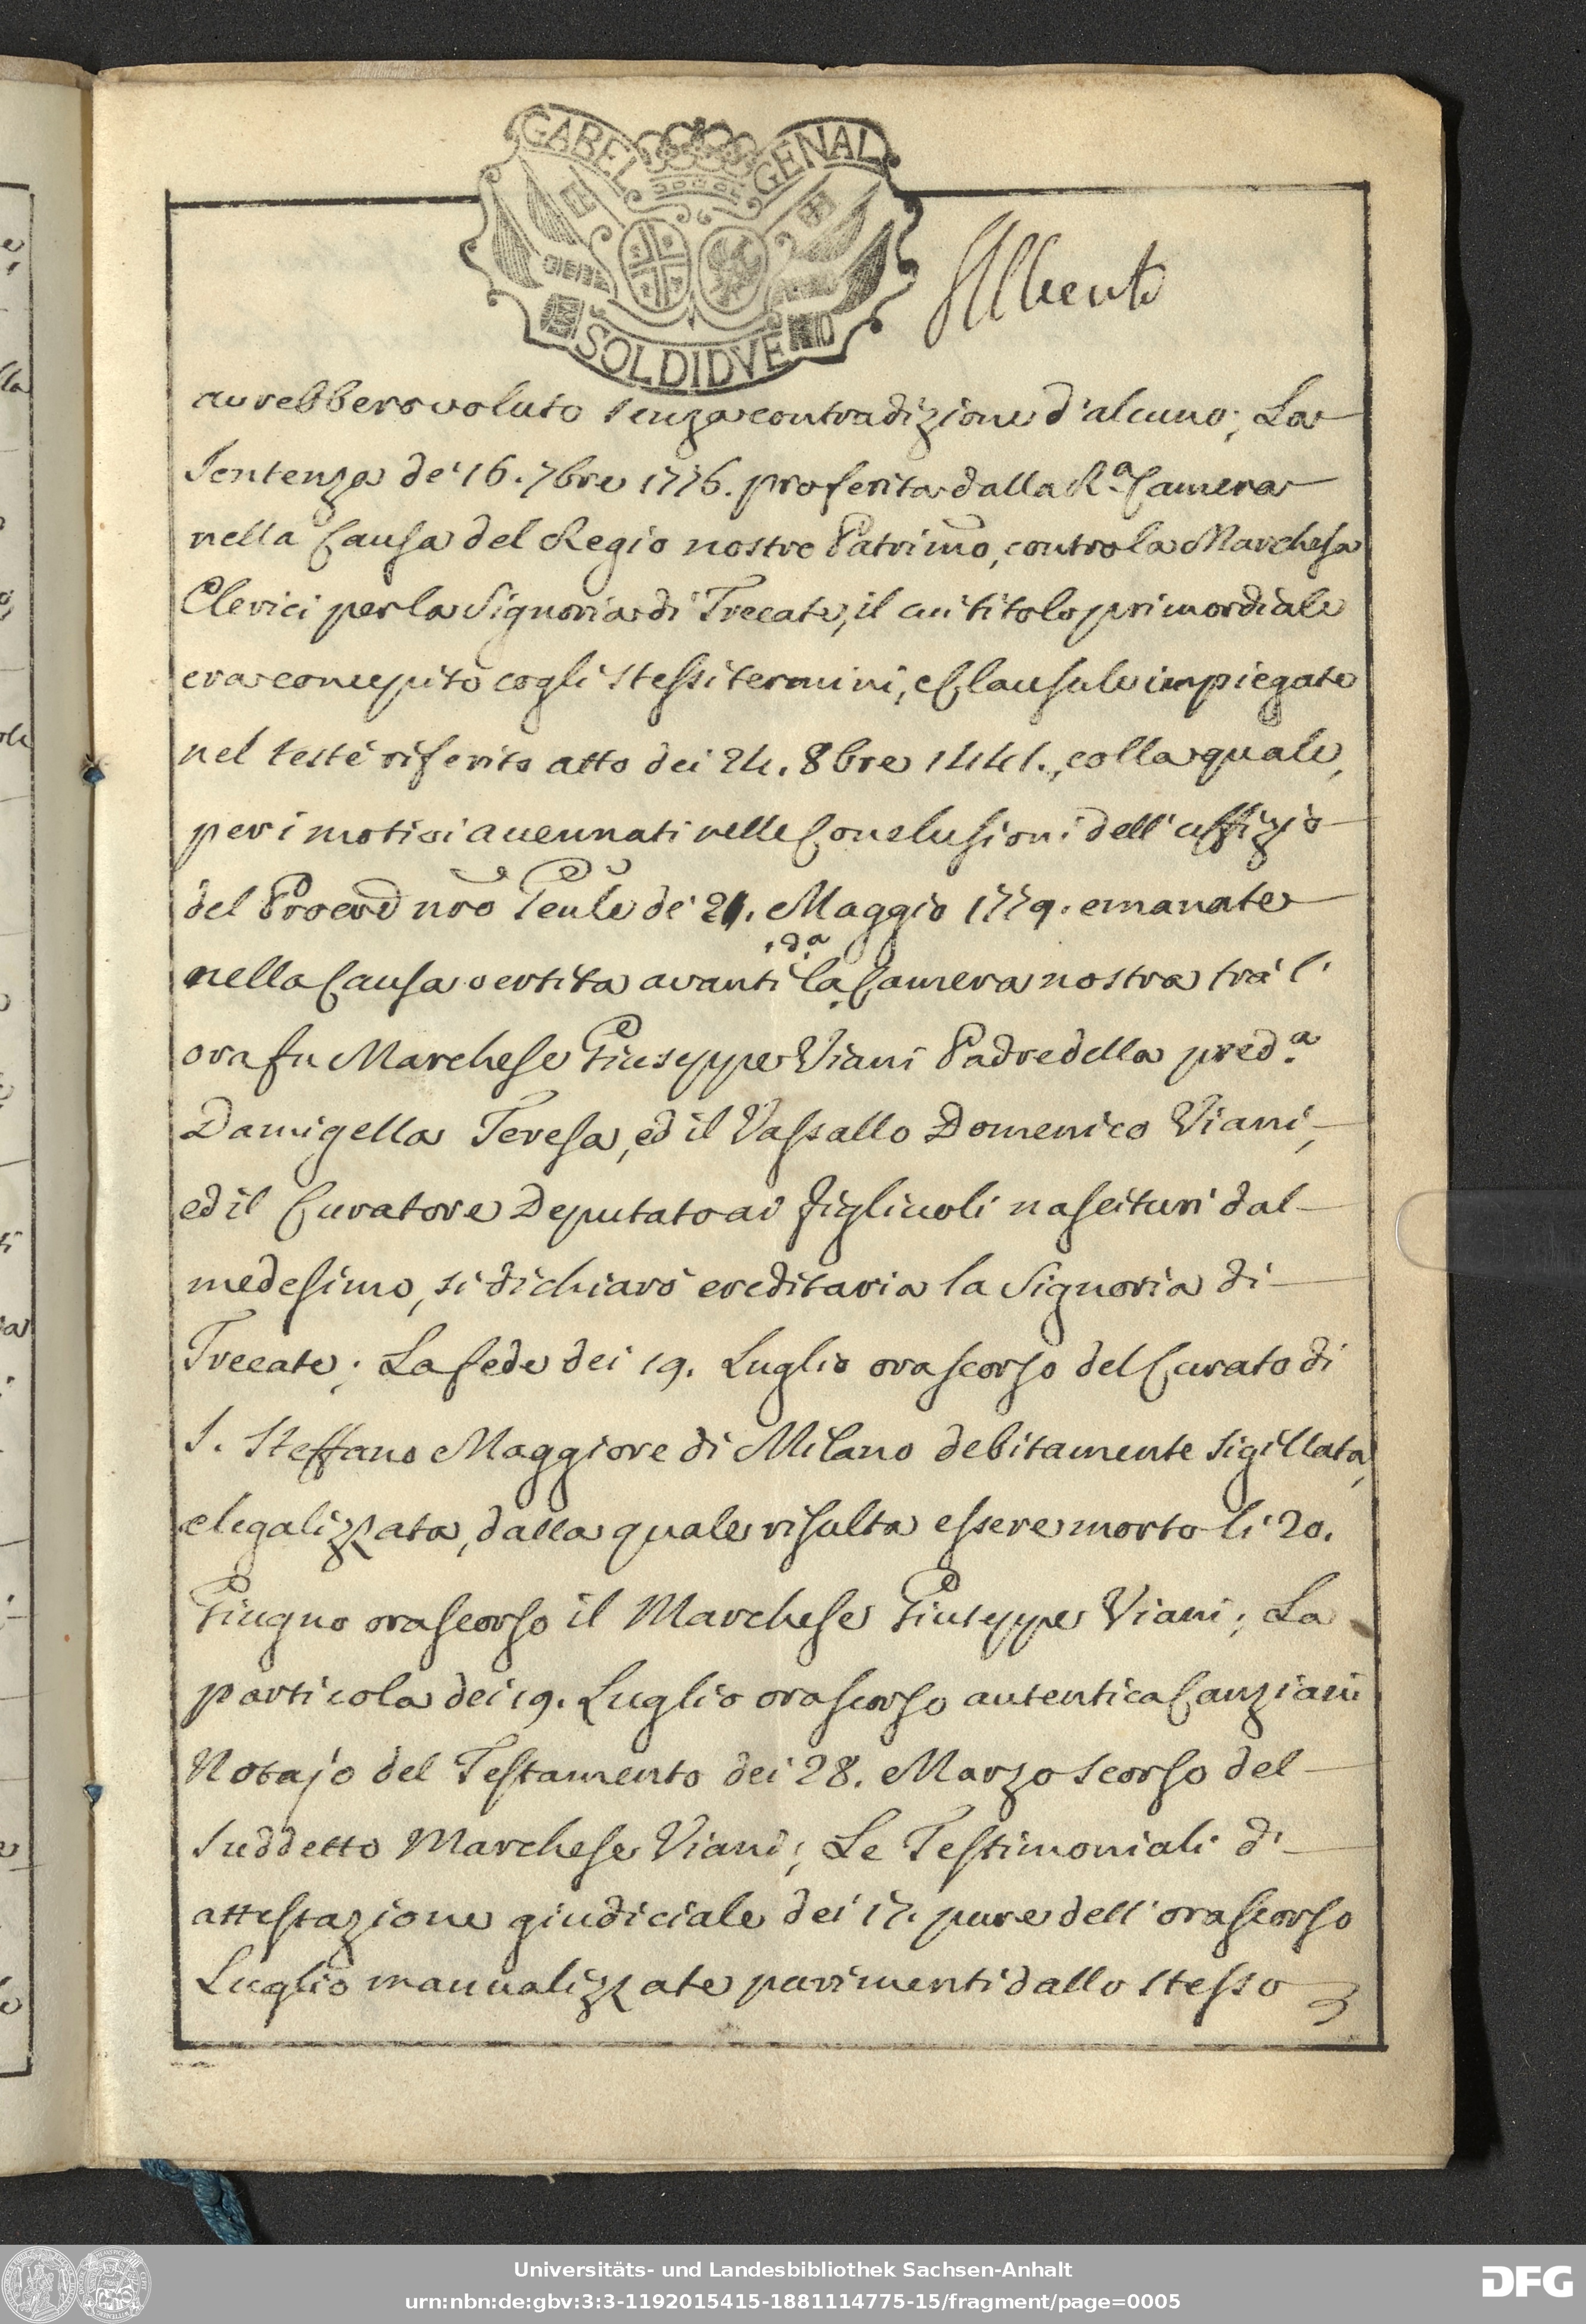 GABEL GENAL
SOLDI DVE
avrebbero voluto senza contradizione d'alcuno; La
Sentenza de' 16. 7bre 1776. proferita dalla R.a Camera
nella Causa del Regio nostro Patrimo, contro la Marchesa
Clerici per la Signoria di Trecate, il cui titolo primordiale
era concepito cogli stessi termini, e Clausule impiegate
nel testè riferito atto dei 24. 8bre 1441., colla quale,
per i motivi accennati nelle Conclusioni dell'uffizio
del Procre nro Genle de' 21. Maggio 1779. emanate
nella Causa vertita avanti la d.a Camera nostra trà l'
ora fu Marchese Giuseppe Viani Padre della pred.a
Damigella Teresa, ed il Vassallo Domenico Viani,
ed il Curatore Deputato ai figliuoli nascituri dal
medesimo, si dichiarò ereditaria la Signoria di
Trecate; La fede dei 19. Luglio orascorso del Curato di
S. Steffano Maggiore di Milano debitamente sigillata,
e legalizzata, dalla quale risulta essere morto li 20.
Giugno orascorso il Marchese Giuseppe Viani; La
particola dei 19. Luglio orascorso autentica Canziani
Notajo del Testamento dei 28. Marzo scorso del
suddetto Marchese Viani; Le Testimoniali d'
attestazione giudiciale dei 17. pure dell'orascorso
Luglio manualizzate parimenti dallo stesso
Universitäts- und Landesbibliothek Sachsen-Anhalt
urn:nbn:de:gbv:3:3-1192015415-1881114775-15/fragment/page=0005
DFG